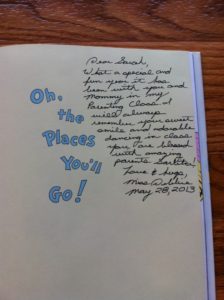 Dear Sarah,
What a special and
fun year it has
been with you and
Mommy in my
Parenting Class. I
will always
remember your sweet
smile and adorable
dancing in class.
You are blessed
with amazing
parents
Love & hugs,
Miss
May 28, 2013
Oh,
the
Places
You'll
Go!